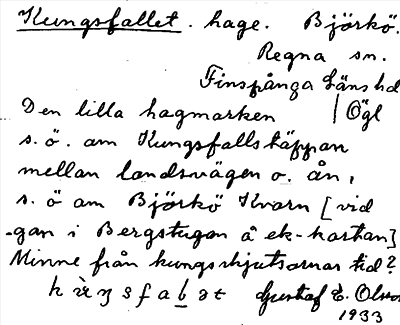 Kungsfallet. hage. Björkö.
Regna sn.
Finspånga Läns hd
Den lilla hagmarken | Ögl
s.ö. om Kungsfallstäppan
mellan landsvägen o. ån,
s. ö om Björkö Kvarn [vid
-gan i Bergstugan å ek-kartan]
Minne från kungsskjutsarnas tid?
Gustaf E. Olsson
1933